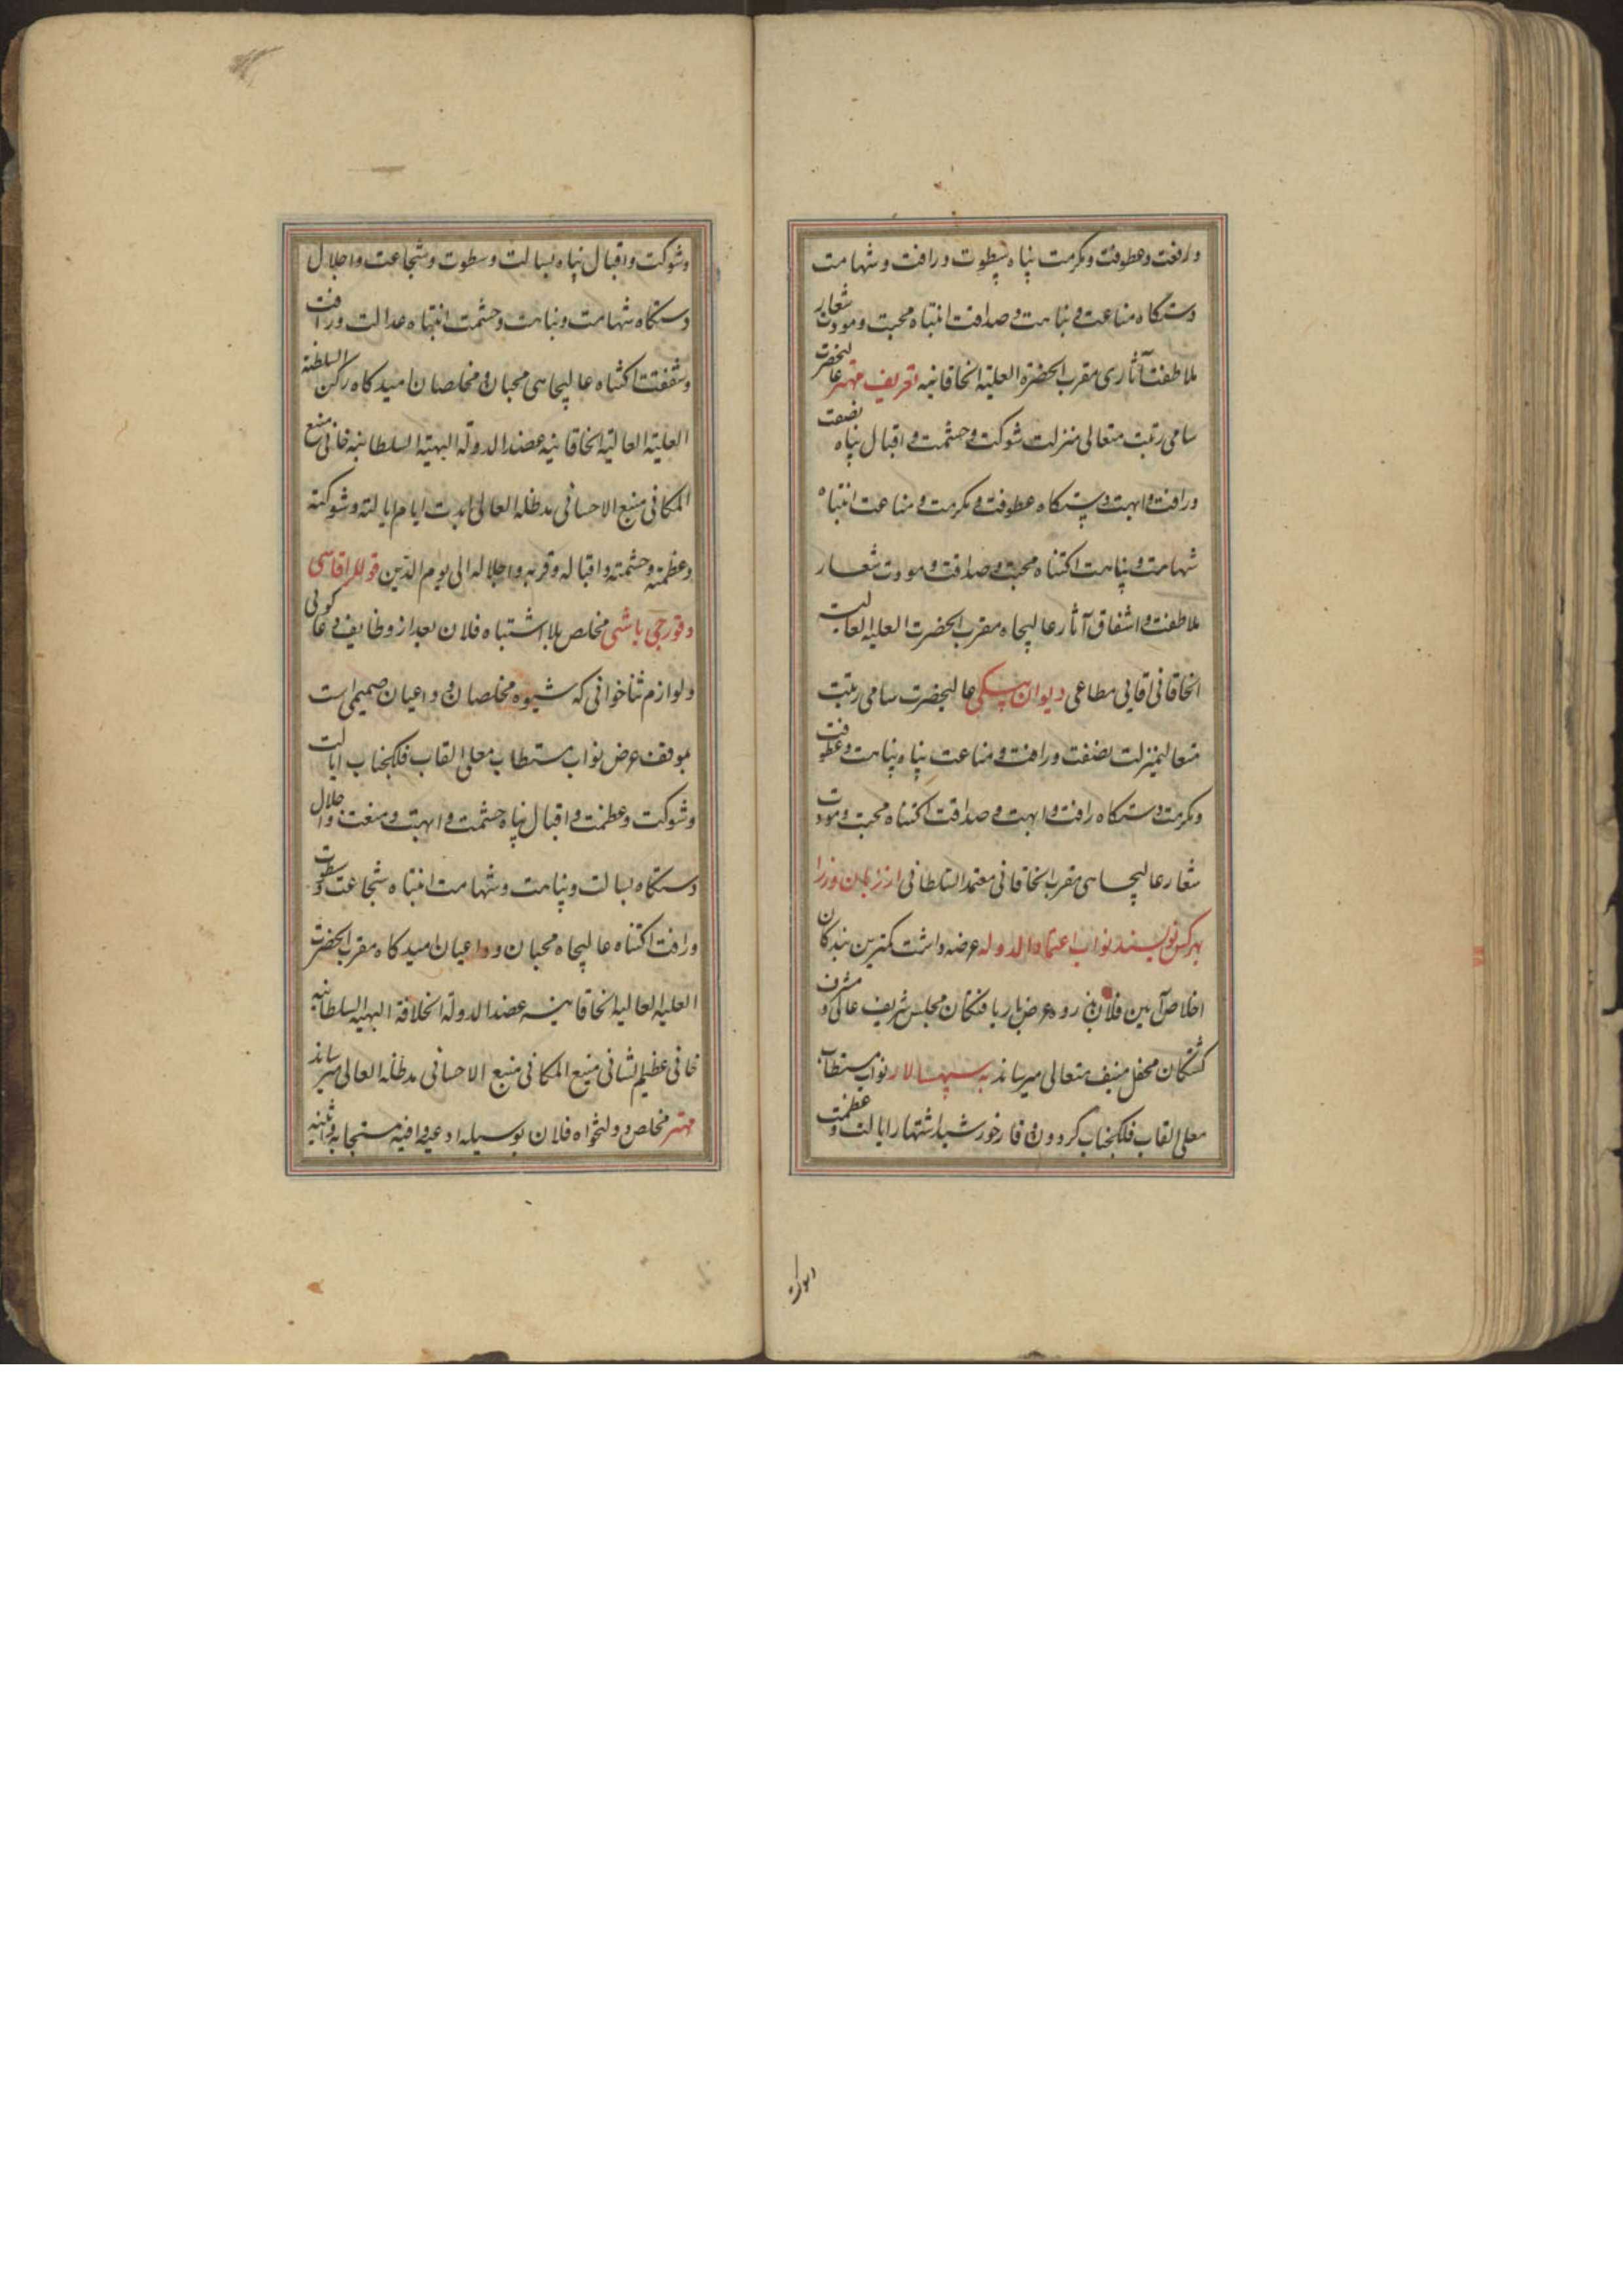 ورافت وعطوفت ومکرمت پناه سطوت ورافت وشهامت
دستکاه مناعت و نباهت و صداقت انتباه محبت ومودت شعار
ملاطفت آثاری مقرب الحضرة العلیة الخاقانیه تعریف مهتر عالیحضرت
سامی رتبت متعالی منزلت شوکت و حشمت و اقبال پناه نصفت
ورافت و ابهت دستکاه عطوفت و مکرمت و مناعت انتباه
شهامت و نباهت اکتناه محبت و صداقت و مودت شعار
ملاطفت و اشفاق آثار عالیجاه مقرب الحضرت العلیه العالیت
الخاقانی اقایی مطاعی دیوان بیکی عالیحضرت سامی رتبت
متعالیمنزلت نصفت ورافت و مناعت پناه نباهت و عطوفت
ومکرمت دستکاه رافت و ابهت و صداقت اکتناه محبت و مودت
شعار عالیجاهی مقرب الخاقانی معتمد السلطانی از زبان وزرا
بهرکس نویسند نواب اعتماد الدوله عرضه داشت کمترین بندکان
اخلاص آیین فلان ذروه عرض باریافتکان مجلس شریف عالی و مشرف
کشتکان محفل منیف متعالی میرساند به سپهسالار نواب مستطاب
معلی القاب فلکجناب کردون وقار خورشید اشتهار ایالت و عظمت
دیوان
وشوکت واقبال پناه بسالت وسطوت وشجاعت واجلال
دستکاه شهامت ونباهت وحشمت انتباه عدالت ورافت
وشفقت اکتناه عالیجاهی محبان و مخلصان امیدکاه رکن السلطنة
العلیة العالیة الخاقانیه عضد الدولة البهیة السلطانیه خانی منیع
المکانی منبع الاحسانی مدظله العالی ابدت ایام ایالته وشوکته
وعظمته وحشمته واقباله وقربه واجلاله الی یوم الدین قوللر اقاسی
وقورجی باشی مخلص بلا اشتباه فلان بعد از وظایف دعا کوئی
ولوازم ثناخوانی که شیوه مخلصان و داعیان صمیمی است
بموقف عرض نواب مستطاب معلی القاب فلکجناب ایالت
وشوکت وعظمت و اقبال پناه حشمت و ابهت و منعت و اجلال
دستکاه بسالت ونباهت وشهامت انتباه شجاعت و سطوت
ورافت اکتناه عالیجاه محبان و داعیان امیدکاه مقرب الحضرت
العلیه العالیه الخاقانیه عضد الدولة الخلافة البهیه السلطانیه
خانی عظیم الشانی منیع المکانی منبع الاحسانی مدظله العالی میرساند
مهتر مخلص دولتخواه فلان بوسیله ادعیه وافیه مستجابه و اثنیه